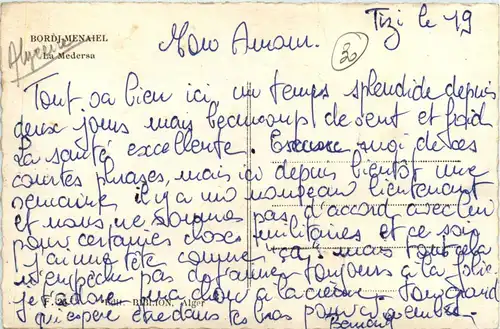 BORDJ-MENAIEL
La Medersa
Algérie
Tizi le 19
30
Mon Amour.
Tout va bien ici, un temps splendide depuis
deux jours mais beaucoup de vent et froid
La santé excellente. Excuse moi de ces
courtes phrases, mais ici depuis bientôt une
semaine il y a un nouveau lieutenant
et nous ne sommes pas d'accord avec lui
pour certaines choses militaires et ce soir
j'ai une tête comme ça, mais tout cela
n'empêche pas de t'aimer toujours à la folie
je t'adore ma à la Ton grand
qui espère être dans tes bras pour
Alger